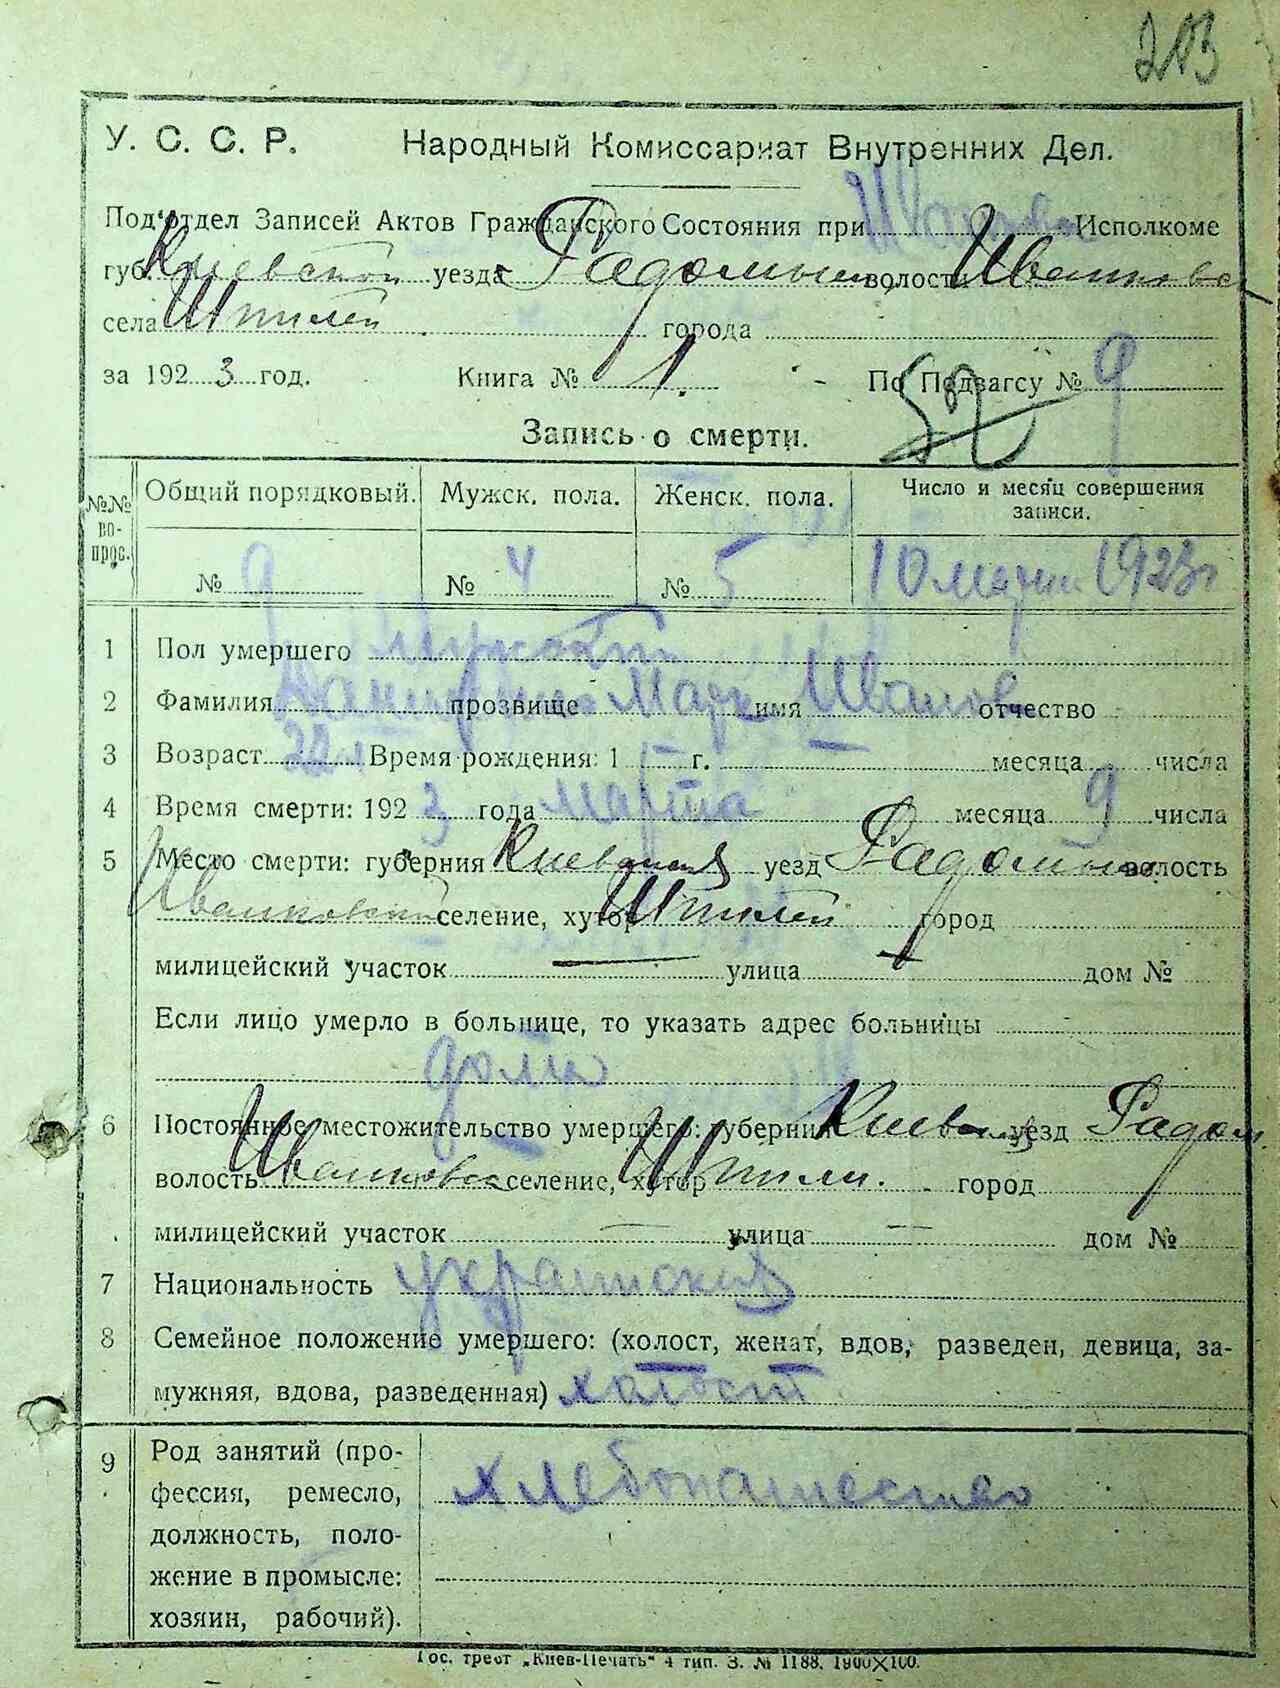 203
У. С. С. Р. Народный Комиссариат Внутренних Дел.
Под'отдел Записей Актов Гражданского Состояния при Иванков Исполкоме
губ. Киевской уезда Радомыш волости Иванковск
села Шпилей города
за 1923 год. Книга № 1. По Подзагсу № 9
Запись о смерти.
№№ вопрос. Общий порядковый. Мужск. пола. Женск. пола. Число и месяц совершения записи.
№ 9 № 4 № 5 10 марта 1923 г
1 Пол умершего Мужской
2 Фамилия прозвище Марк имя Иванов отчество
3 Возраст 22 л Время рождения: 1 г. месяца числа
4 Время смерти: 1923 года марта месяца 9 числа
5 Место смерти: губерния Киевская уезд Радомыш волость
Иванковской селение, хутор Шпилей город
милицейский участок улица дом №
Если лицо умерло в больнице, то указать адрес больницы
дома
6 Постоянное местожительство умершего: губерния Киевская уезд Радом
волость Иванковск селение, хутор Шпили. город
милицейский участок — улица — дом №
7 Национальность украинская
8 Семейное положение умершего: (холост, женат, вдов, разведен, девица, за-
мужняя, вдова, разведенная) холост
9 Род занятий (про-
фессия, ремесло, хлебопашество
должность, поло-
жение в промысле:
хозяин, рабочий).
Гос. трест „Киев-Печать“ 4 тип. З. № 1188. 1900×100.